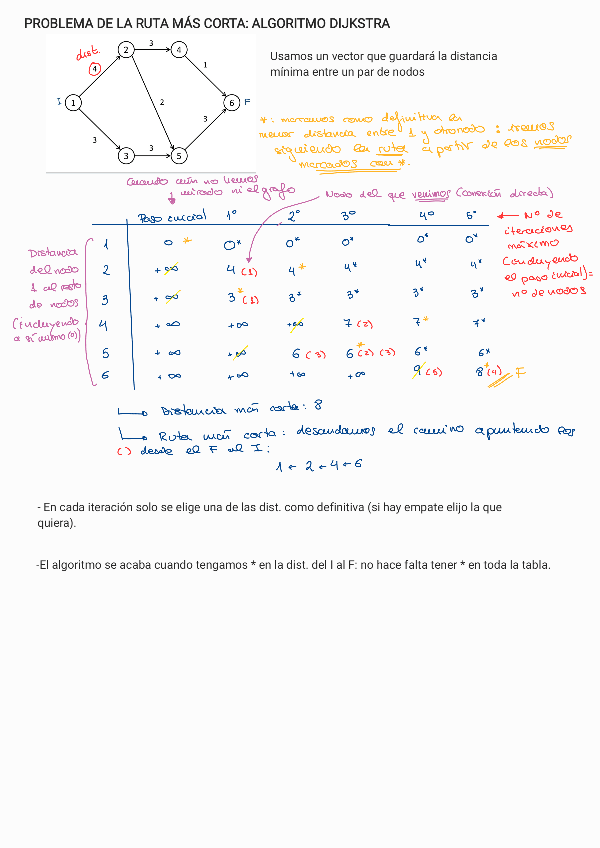 PROBLEMA DE LA RUTA MÁS CORTA: ALGORITMO DIJKSTRA
dist.
4
I 1 2 3 4 5 6 F
3 1 2 3 3 3
Usamos un vector que guardará la distancia
mínima entre un par de nodos
*: marcamos como definitiva la
menor distancia entre 1 y otro nodo: iremos
siguiendo la ruta a partir de los nodos
marcados con *.
Cuando aún no hemos
mirado ni el grafo
Nodo del que venimos (conexión directa)
Paso inicial 1º 2º 3º 4º 5º
← Nº de
iteraciones
máximo
(incluyendo
el paso inicial) =
nº de nodos
Distancia
del nodo
1 al resto
de nodos
(incluyendo
a sí mismo (0))
1 0 * 0* 0* 0* 0* 0*
2 +∞ 4 (1) 4 * 4* 4* 4*
3 +∞ 3 * (1) 3* 3* 3* 3*
4 +∞ +∞ +∞ 7 (2) 7 * 7*
5 +∞ +∞ 6 (3) 6 * (2) (3) 6* 6*
6 +∞ +∞ +∞ +∞ 9 (5) 8 * (4) F
Distancia más corta: 8
Ruta más corta: desandamos el camino apuntando los
( ) desde el F al I:
1 ← 2 ← 4 ← 6
- En cada iteración solo se elige una de las dist. como definitiva (si hay empate elijo la que
quiera).
-El algoritmo se acaba cuando tengamos * en la dist. del I al F: no hace falta tener * en toda la tabla.